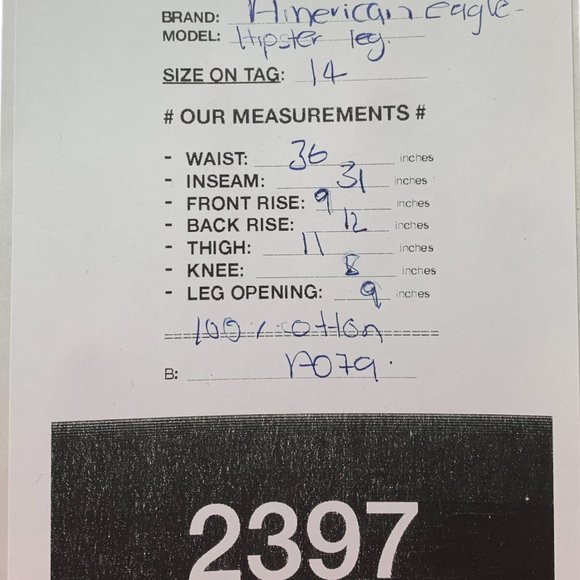 BRAND: American Eagle
MODEL: Hipster leg.
SIZE ON TAG: 14
# OUR MEASUREMENTS #
- WAIST: 36 inches
- INSEAM: 31 inches
- FRONT RISE: 9 inches
- BACK RISE: 12 inches
- THIGH: 11 inches
- KNEE: 8 inches
- LEG OPENING: 9 inches
100% cotton
B: A079.
2397